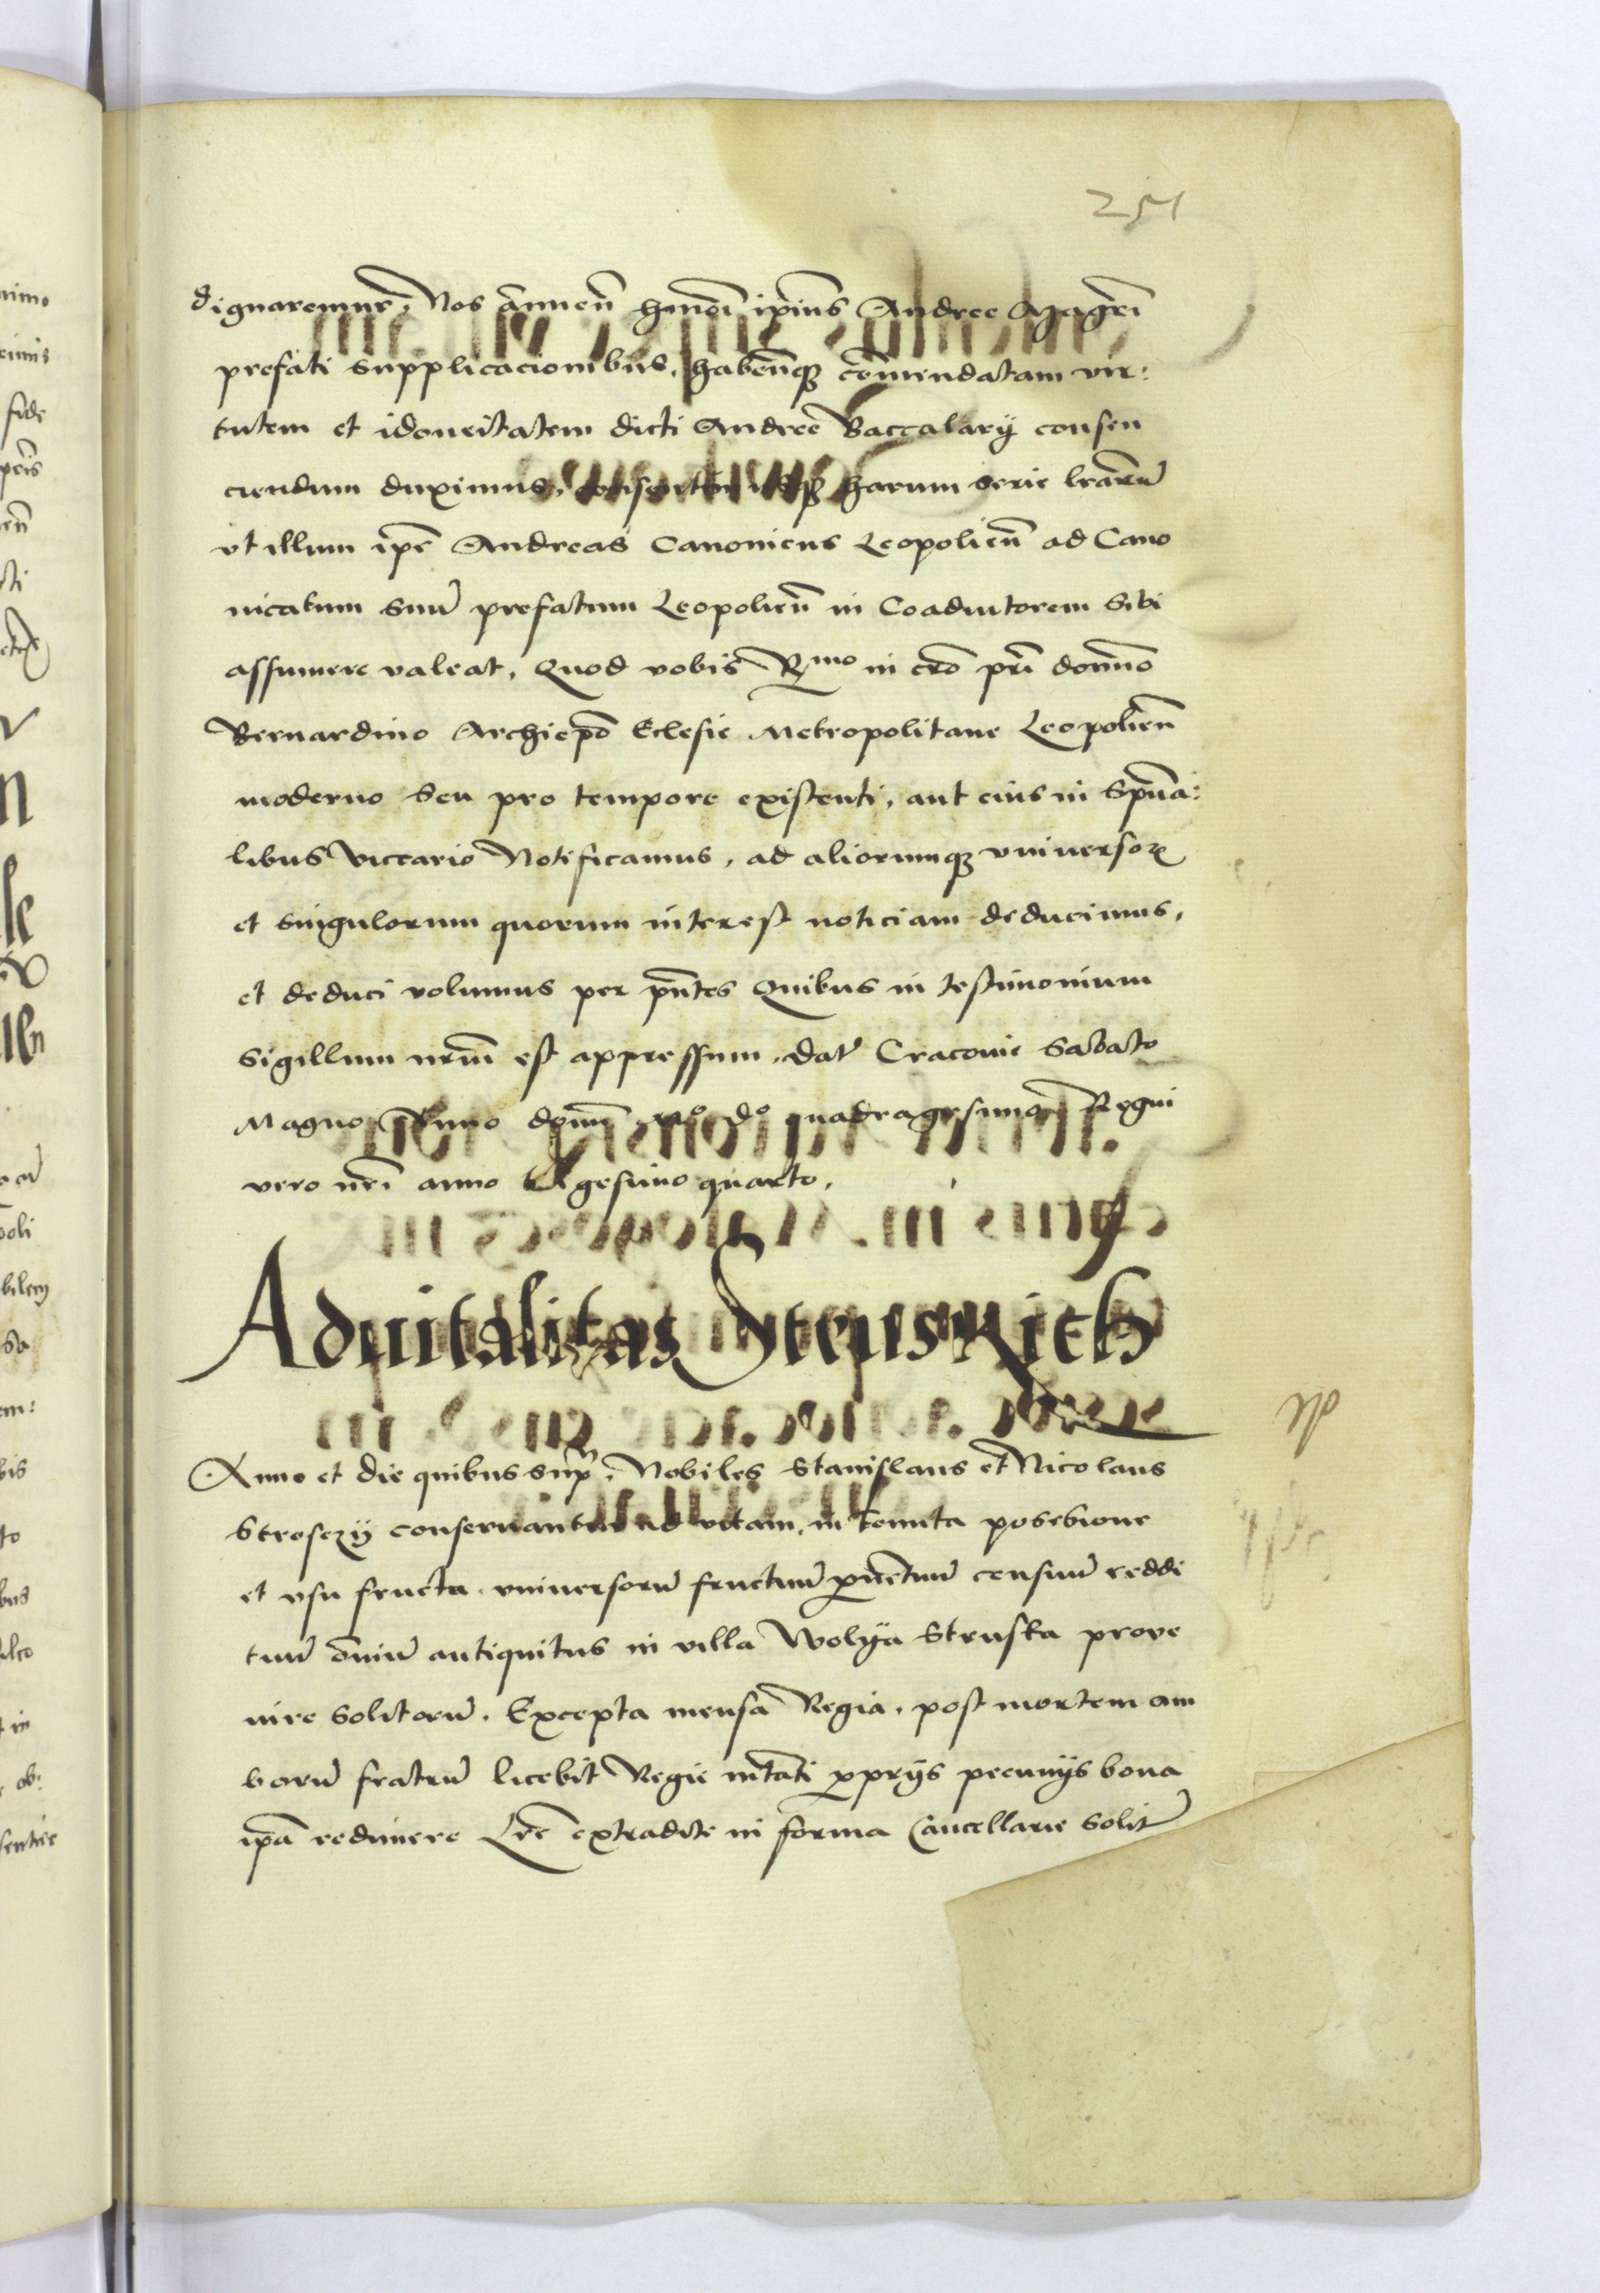 251
dignaremur, Nos annuen̄ hmōi ip̄ius Andree Magr̄i
prefati supplicacionibus, haben̄q̄ꝫ cōmendatam vir:
tutem et idoneitatem dicti Andree Baccalarÿ consen
ciendum duximus, consentimusqꝫ harum serie lrārū
vt illum ip̄e Andreas Canonicus Leopolien̄ ad Cano
nicatum suū prefatum Leopolien̄ in Coadiutorem sibi
assumere valeat, Quod vobis Rmo in cr̄o pr̄i domno
Bernardino Archiep̄o Eclesie Metropolitane Leopolien̄
moderno seu pro tempore existenti, aut eius in Spūa:
libus viccario Notificamus, ad aliorumqꝫ vniversoꝝ
et singulorum quorum interest noticiam deducimus,
et deduci volumus per pn̄tes Quibus in testimonium
Sigillum nrm̄ est appressum, dat̄ Cracouie Sabato
Magno Anno domī mo do quadragesimo Regni
vero nr̄i anno gesimo quarto,
Aduitalitas
Anno et die quibus sup̄, Nobiles Stanislaus et Nicolaus
conseruantur ad vitam, in tenuta possessione
et vsu fructa vniversorū fructuū ꝓuētuū censuū reddi
tuū om̄iū antiquitus in villa Wolya Struska prove
nire solitorū, Excepta mensa Regia, post mortem am
borū fratrū licebit Regie mt̄ati ꝓprÿs pecunÿs bona
ip̄a redimere Lr̄e extradite in forma Cancellarie Solit̄